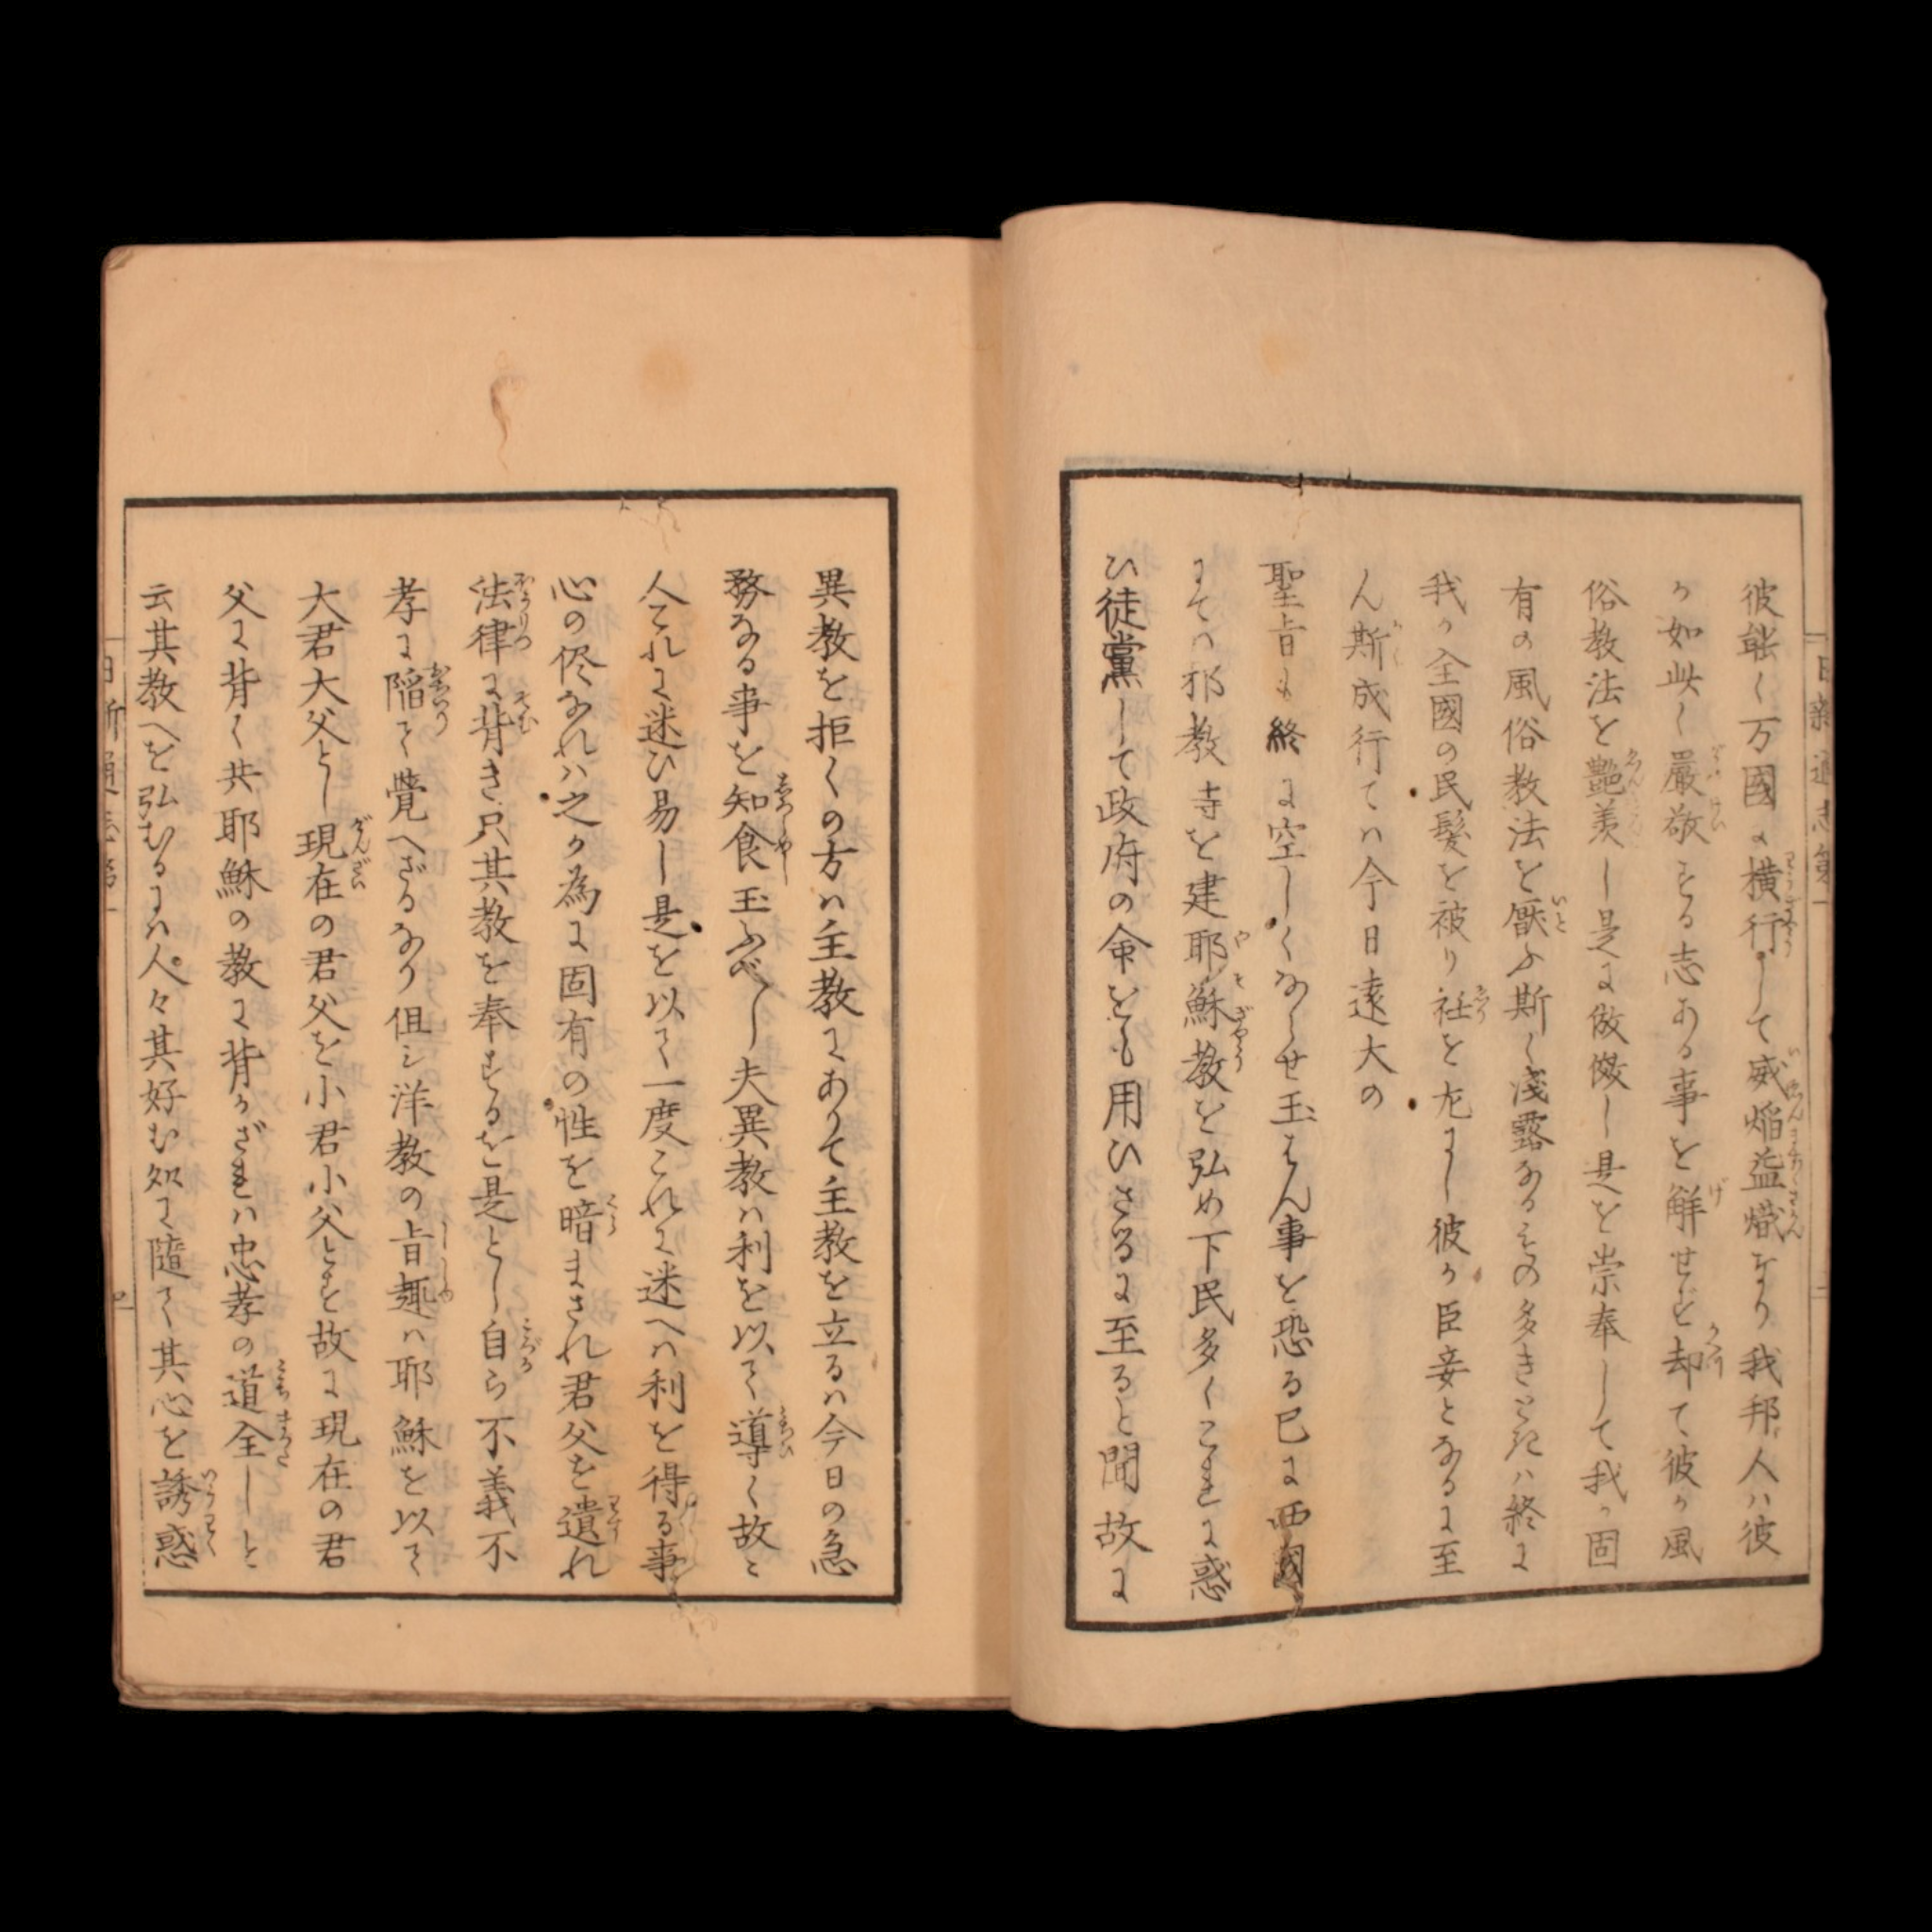 彼能く万國に横行して威焔益熾なり我邦人ハ彼
か如此く嚴敬する志ある事を解せず却て彼か風
俗教法を艶羨し是に倣傚し是を崇奉して我か固
有の風俗教法を厭ふ斯く淺露なるものの多きときハ終に
我か全國の民髪を被り衽を左にし彼か臣妾となるに至
ん斯成行てハ今日遠大の
聖旨も終に空しくならせ玉はん事を恐る已に西國
にてハ邪教寺を建耶蘇教を弘め下民多くこれに惑
ひ徒黨して政府の命をも用ひさるに至ると聞故に
異教を拒くの方ハ主教にありて主教を立るハ今日の急
務なる事を知食玉ふべし夫異教ハ利を以て導く故ニ
人これに迷ひ易し是を以て一度これに迷へハ利を得る事
心の侭なれハ之か為に固有の性を暗まされ君父を遺れ
法律に背き只其教を奉するを是とし自ら不義不
孝に陥て覺へざるなり但シ洋教の旨趣ハ耶蘇を以て
大君大父とし現在の君父を小君小父とす故に現在の君
父に背く共耶穌の教に背かざれハ忠孝の道全しと
云其教へを弘むるにハ人々其好む処に隨て其心を誘惑
日新通志第一